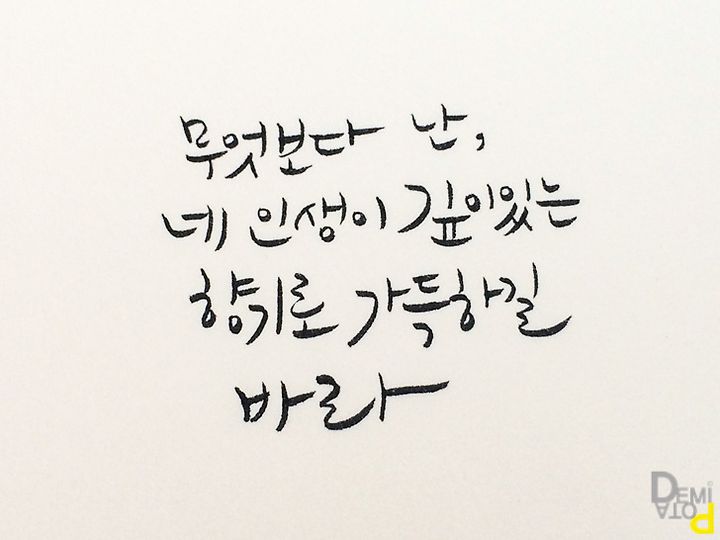 무엇보다 난,
네 인생이 깊이있는
향기로 가득하길
바라
DEMI
POTA